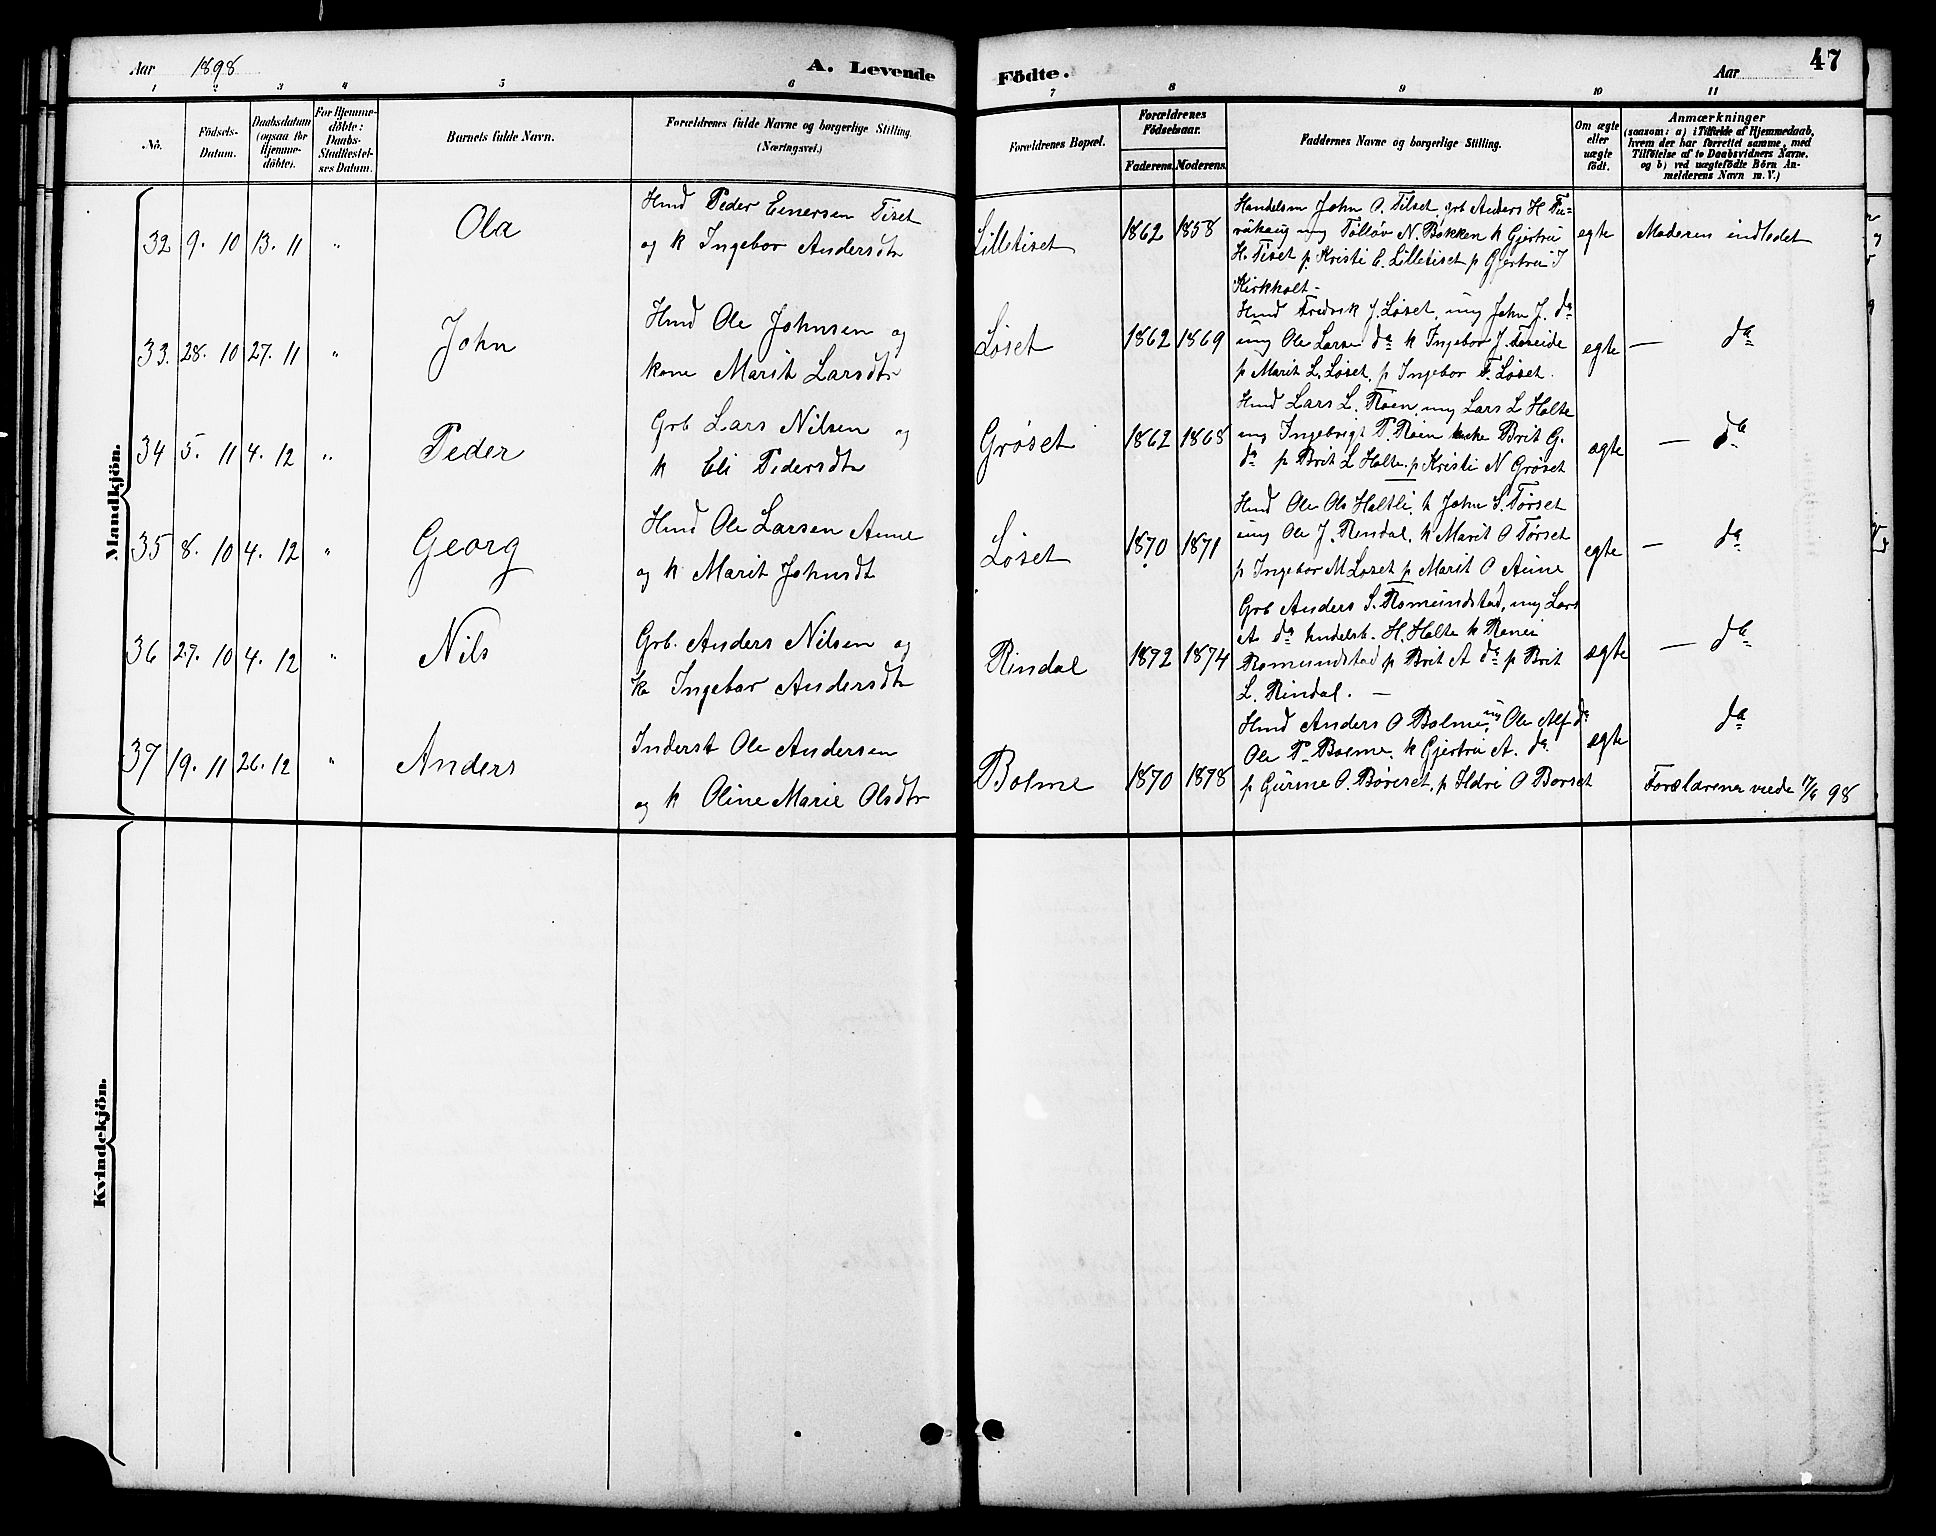 Aar 1898
A. Levende
Födte.
Aar
47
1 2 3 4 5 6 7 8 9 10 11
No.
Födsels-
Datum.
Daabsdatum
(ogsaa for
Hjemme-
döbte).
For Hjemme-
döbte:
Daabs-
Stadfæstel-
ses Datum.
Barnets fulde Navn.
Forældrenes fulde Navne og borgerlige Stilling.
(Næringsvei.)
Forældrenes Bopæl.
Forældrenes
Födselsaar.
Faderens.
Moderens.
Faddernes Navne og borgerlige Stilling.
Om ægte
eller
uægte
födt.
Anmærkninger
(saasom: a) i Tilfælde af Hjemmedaab,
hvem der har forrettet samme, med
Tilföielse af to Daabsvidners Navne,
og b) ved uægtefödte Börn An-
melderens Navn m. V.)
Mandkjön.
32 9. 10 13. 11 "
Ola
Hmd Peder Einersen Tiset
og k Ingebor Andersdtr
Lilletiset
1862 1858
Handelsm John O. Tilset, grb Anders H
ung N. Bakken k Gjertru
H. Tiset p. Kristi E. Lilletiset p Gjertru J
Kirkholt -
egte
Moderen indledet
33. 28. 10 27. 11 "
John
Hmd Ole Johnsen og
kone Marit Larsdtr
Løset
1862 1869
Hmd Fredrik J. Løset, ung John J. da
ung Ole Larse da k Ingebor J.
p Marit L. Løset, p Ingebor F. Løset.
egte
— da
34 5. 11 4. 12 "
Peder
Grb Lars Nilsen og
k Eli Pedersdtr
Grøset
1862 1868
Hmd Lars L. Røen, ung Lars L Halte
ung Ingebrigt P. Røen enke Brit G.
da p Brit L Halte, p Kristi N Grøset
ægte
— da
35 8. 10 4. 12 "
Georg
Hmd Ole Larsen Aune
og k Marit Johnsdt
Løset
1870 1871
Hmd Ole Ols Haltli, k John S. Tørset
ung Ole J. Rindal, k Marit O Tørset
p Ingebor M Løset p Marit O Aune
egte
— da
36 27. 10 4. 12 "
Nils
Grb. Anders Nilsen og
k Ingebor Andersdtr
Rindal
1872 1874
Grb Anders S. Romundstad, ung Lars
A da H. Halte k
Romundstad p Brit A da p Brit
L. Rindal. —
ægte
— da
37 19. 11 26. 12 "
Anders
Inderst Ole Andersen
og k Oline Marie Olsdtr
Bolme
1870 1878
Hmd Anders O Bolme, ung Ole Alf da
Ole P. Bolme, k Gjertru A. da
p Gurine O. Børeset, p Ildri O Borset
ægte
da
98
Kvindekjön.